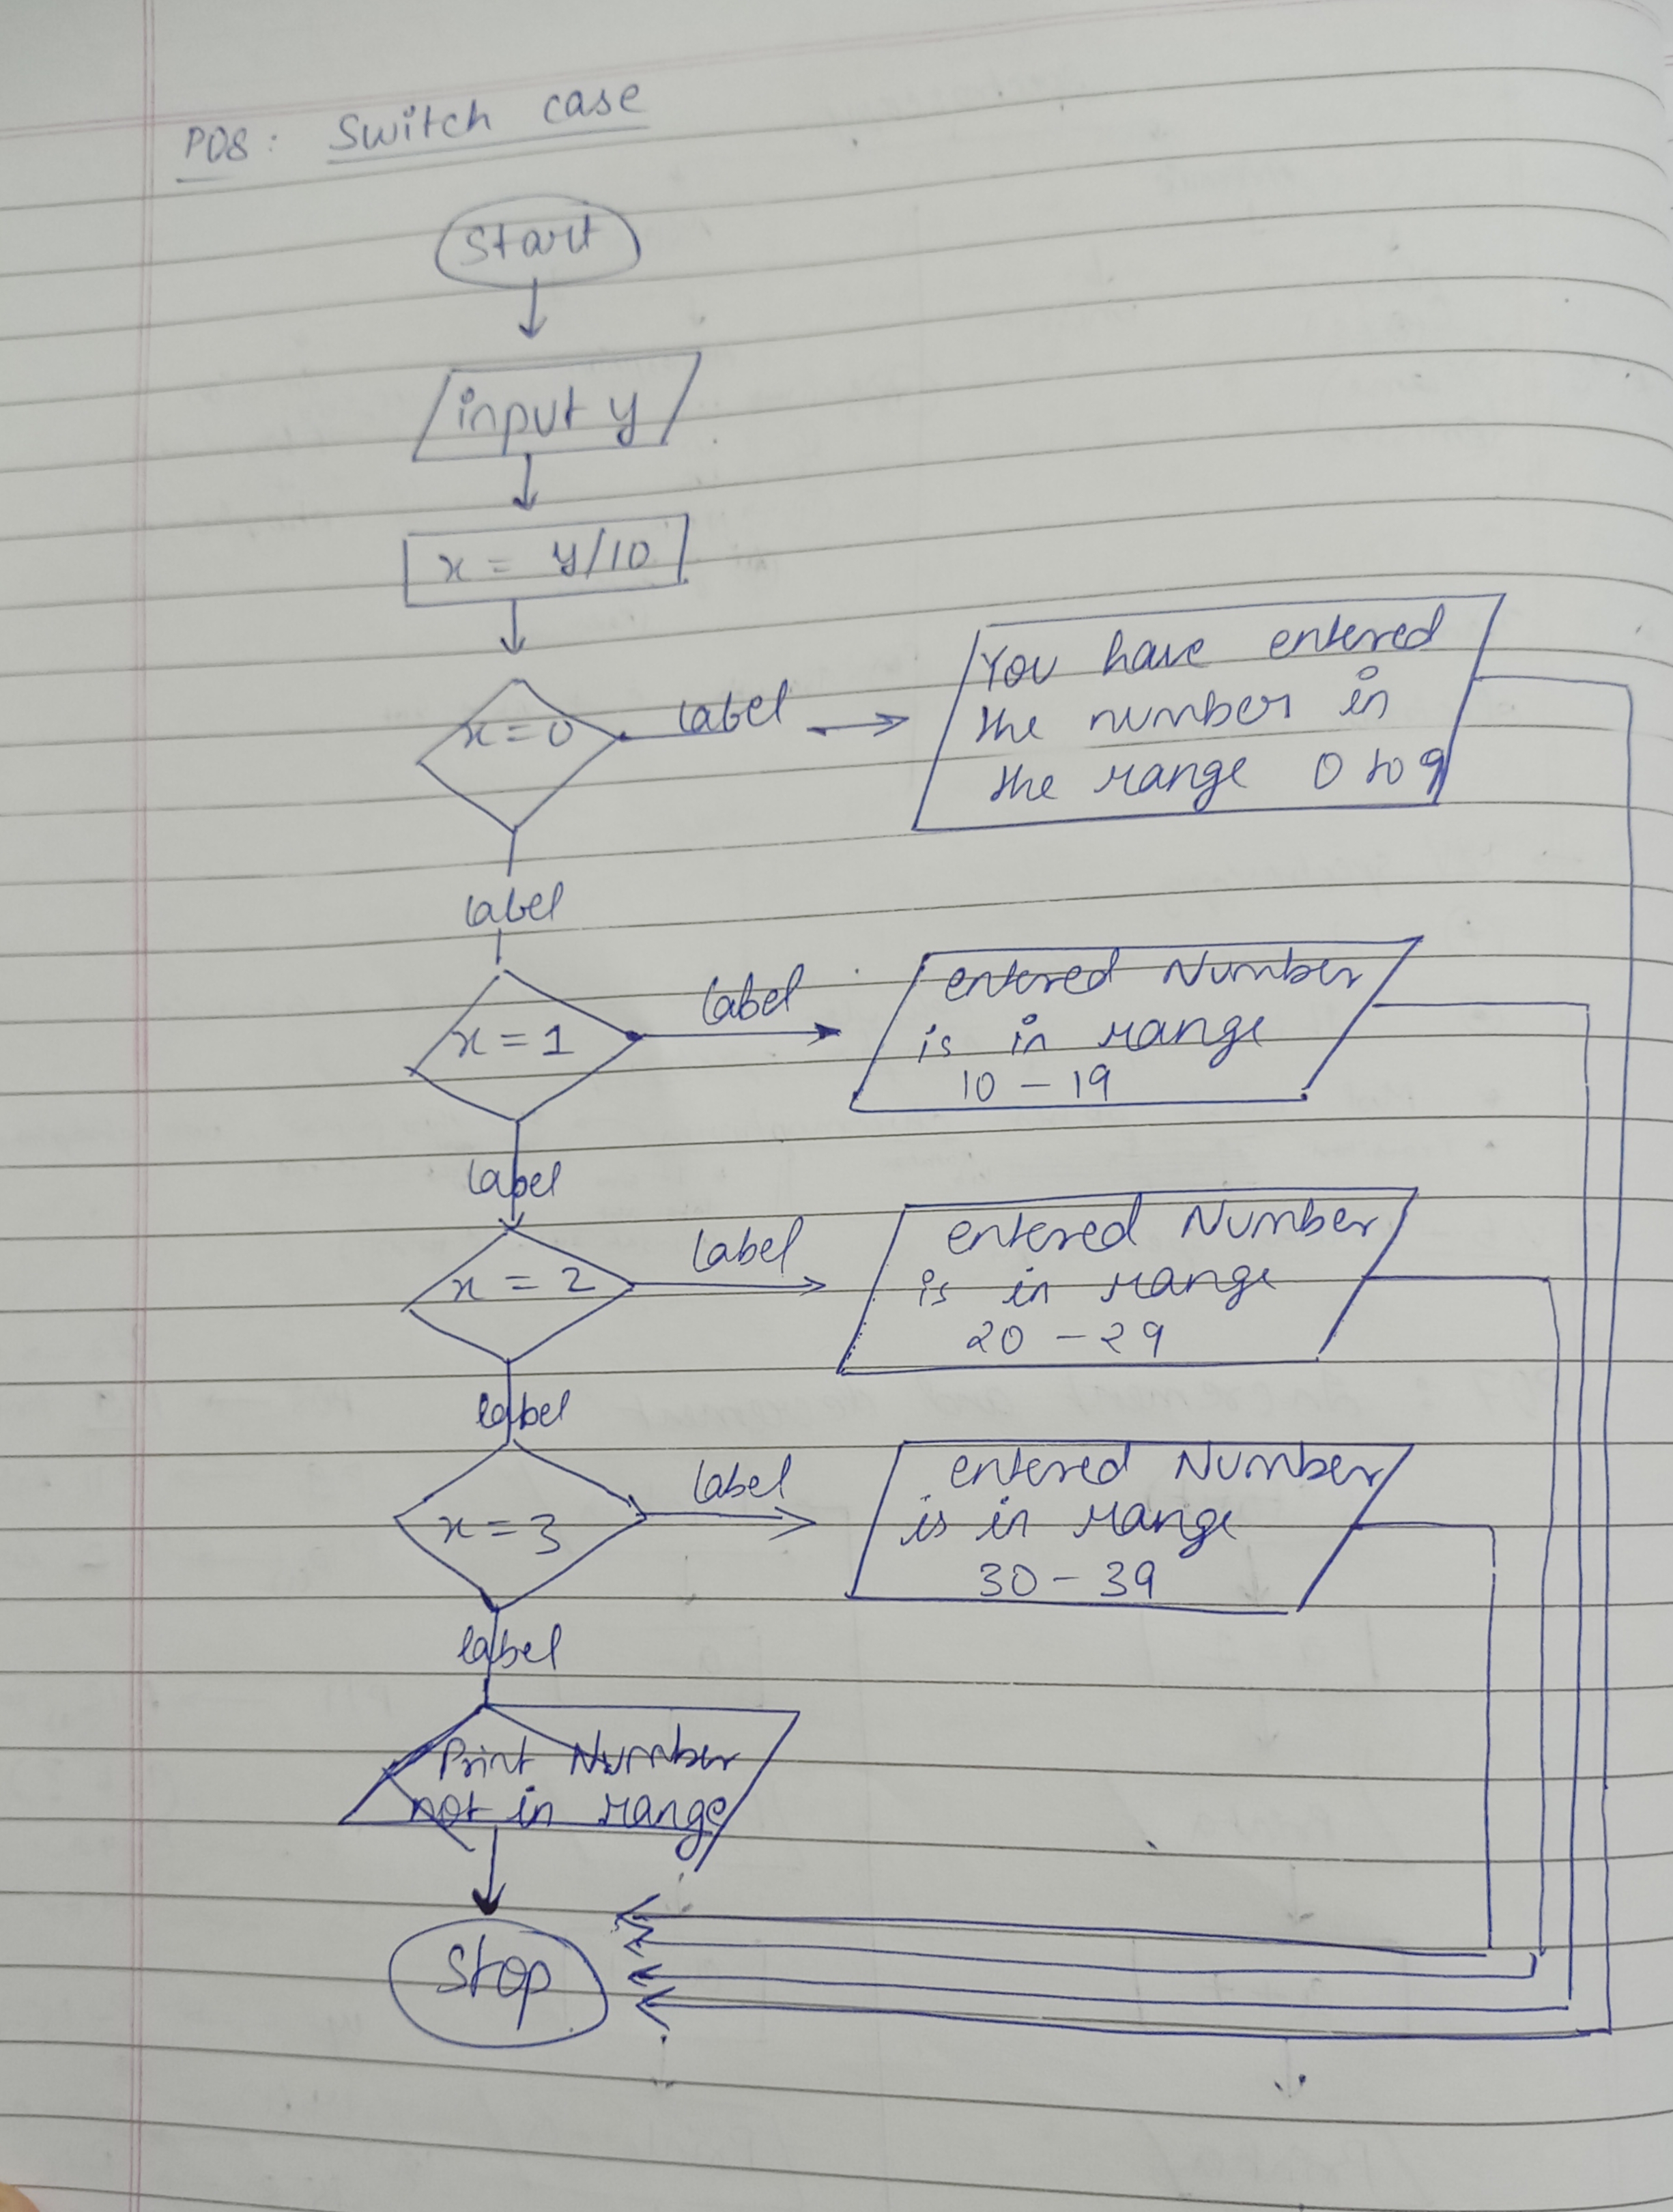 P08: Switch case
Start
input y
x = y/10
x = 0
label
You have entered
the number in
the range 0 to 9
label
x = 1
label
entered Number
is in range
10 - 19
label
x = 2
label
entered Number
is in range
20 - 29
label
x = 3
label
entered Number
is in range
30 - 39
label
Print Number
not in range
Stop